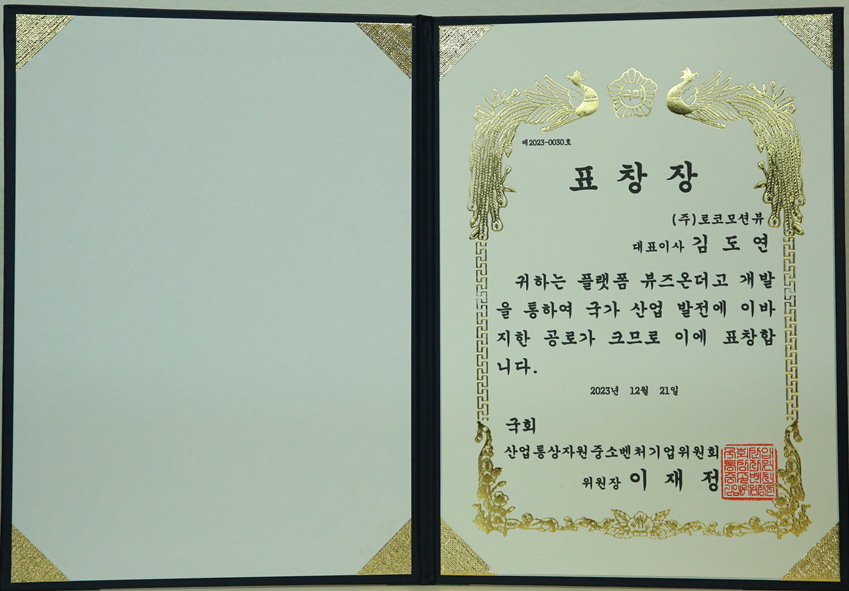 제2023-0030호
표창장
(주)로코모션뷰
대표이사 김도연
귀하는 플랫폼 뷰즈온더고 개발
을 통하여 국가 산업 발전에 이바
지한 공로가 크므로 이에 표창합
니다.
2023년 12월 21일
국회
산업통상자원중소벤처기업위원회
위원장 이재정